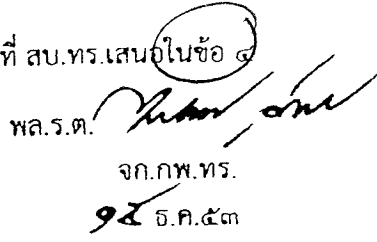 ที่ สบ.ทร.เสนอในข้อ ๔
พล.ร.ต.
จก.กพ.ทร.
๑๕ ธ.ค.๕๓